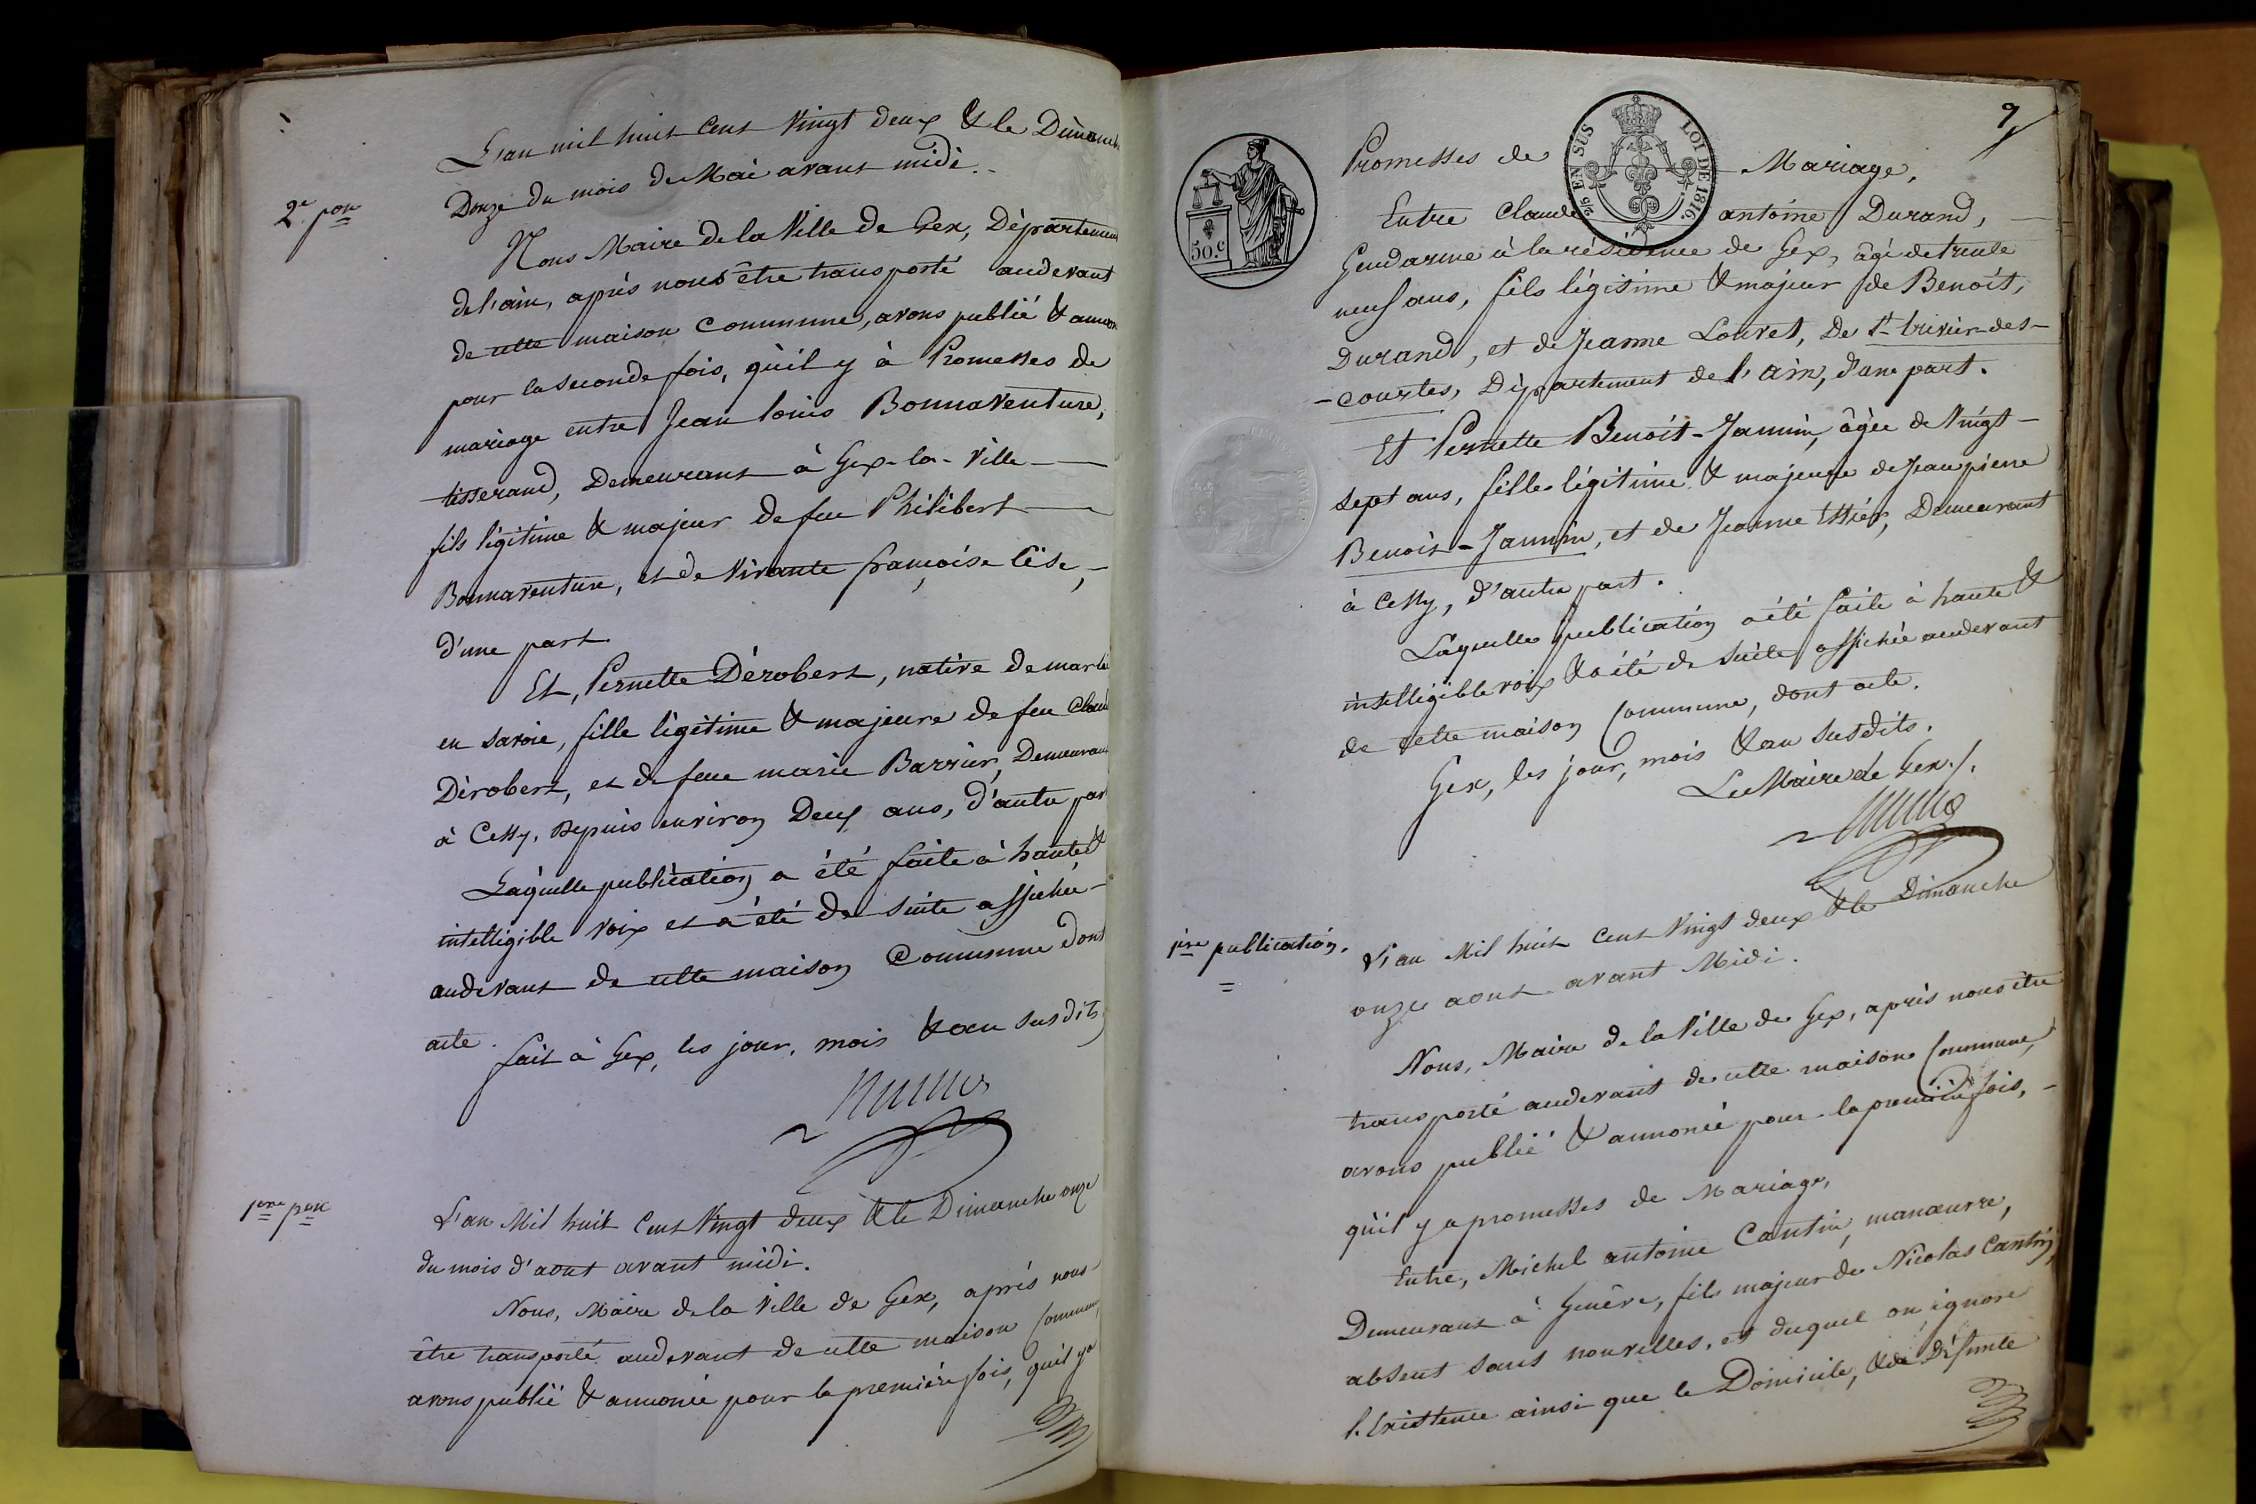 2e pon
L'an mil huit cent vingt deux & le Dimanche
Douze du mois de Mai avant midi.
Nous Maire de la Ville de Gex, Département
de l'ain, après nous être transporté audevant
de cette maison Commune, avons publié & annoncé
pour la seconde fois, qu'il y à Promesses de
mariage entre Jean louis Bonnaventure,
tisserand, Demeurant à Gex-la-Ville
fils légitime & majeur de feu Philibert
Bonnaventure, et de vivante françoise Lise,
d'une part.
Et, Pernette Dérobert, native de
en savoie, fille légitime & majeure de feu Claude
Dérobert, et de feue marie Barrier, Demeurant
à Cessy, Depuis environ Deux ans, d'autre part
Laquelle publication a été faite à haute &
intelligible voix et a été de suite affichée
audevant de cette maison Commune dont
acte.
fait à Gex, les jour, mois & an susdits,
1ere pon
L'an Mil huit Cent Vingt deux & le Dimanche onze
du mois d'aout avant midi.
Nous, Maire de la Ville de Gex, après nous
être transporté audevant de cette maison Commune,
avons publié & annoncé pour la première fois, qu'il y a
9
50.c
2/5 EN SUS
LOI DE 1816.
Promesses de Mariage,
Entre Claude antoine Durand,
Gendarme à la résidence de Gex, âgé de trente
neuf ans, fils légitime & majeur de Benoit,
Durand, et de Jeanne Louvet, De St. trivier-des-
-courtes, Département de l'ain, d'une part.
Et Pernette Benoit-Jannin, âgée de Vingt-
sept ans, fille légitime & majeure de Jean pierre
Benoit-Jannin, et de Jeanne Demeurant
à Cessy, d'autre part.
Laquelle publication a été faite à haute &
intelligible voix & a été de suite affichée audevant
de cette maison Commune, dont acte.
Gex, les jour, mois & an susdits.
Le Maire de Gex./.
1ère publication.
L'an Mil huit Cent Vingt deux & le Dimanche
onze aout avant Midi.
Nous, Maire de la Ville de Gex, après nous être
transporté audevant de cette maison Commune,
avons publié & annoncé pour la première fois,
qu'il y a promesses de Mariage,
Entre, Michel antoine Cantin, manœuvre,
Demeurant à Genêve, fils majeur de Nicolas Cantin,
absent sans nouvelles, et duquel on ignore
l'Existence ainsi que le Domicile, & de Défunte